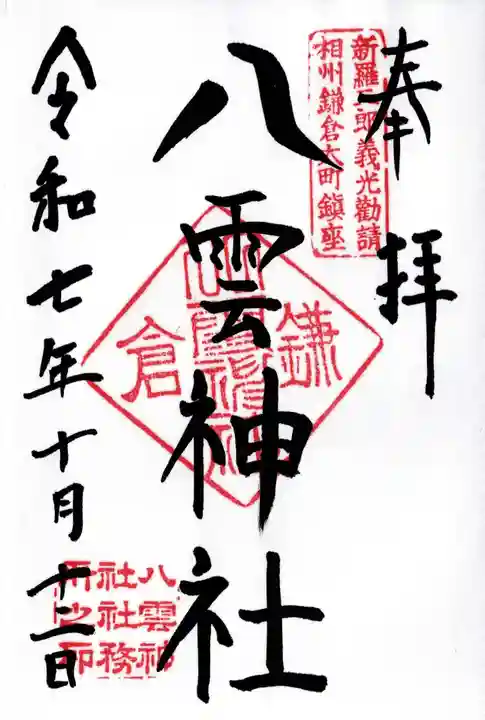 奉拝
新羅三郎義光勸請
相州鎌倉大町鎮座
八雲神社
鎌倉
令和七年十月十二日
八雲神
社社務
所之印